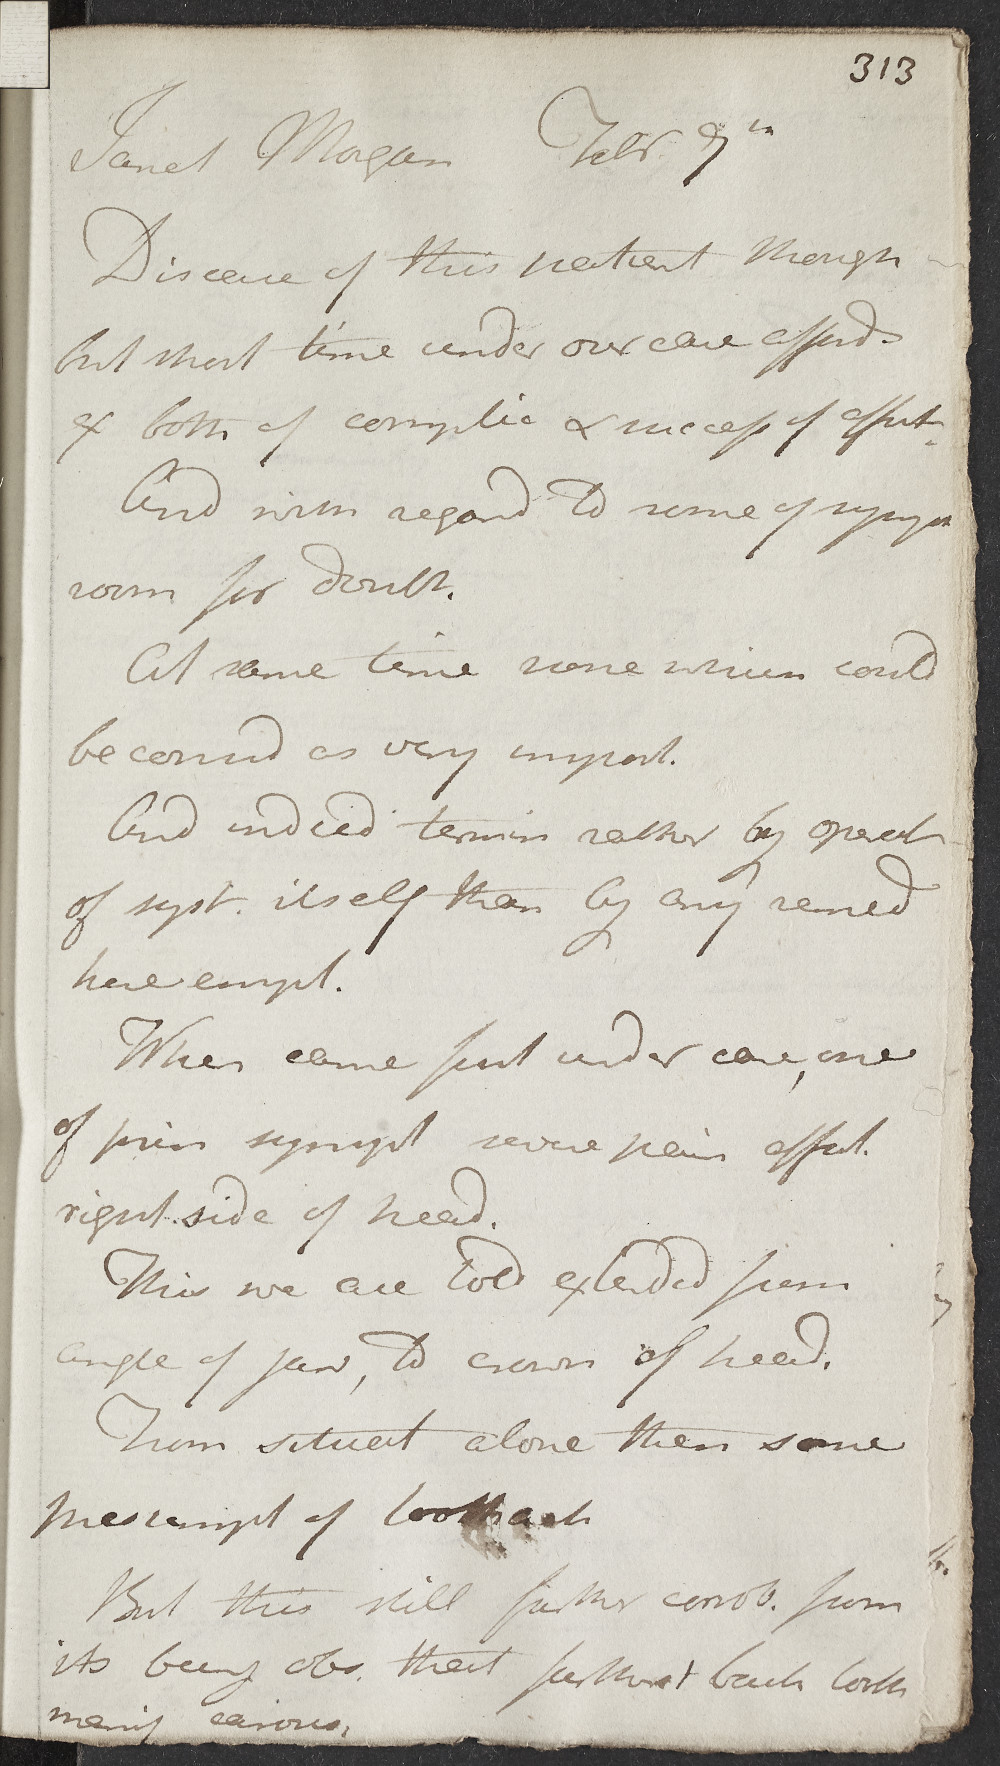 313
Janet Morgan Febr. 7th
Disease of this patient though
but short time under our care affords
ex both of complic & success of effect
And with regard to some of sympt
room for doubt.
At same time none which could
be consid as very import.
And indeed termin rather by operat
of syst. itself than by any remed
here empl.
When came first under care, one
of prin sympt severe pain affect.
right side of head.
This we are told extended from
angle of jaw, to crown of head.
From situat alone then some
presumpt of toothach
But this still farther corrob. from
its being obs. that farthest back tooth
many carious.